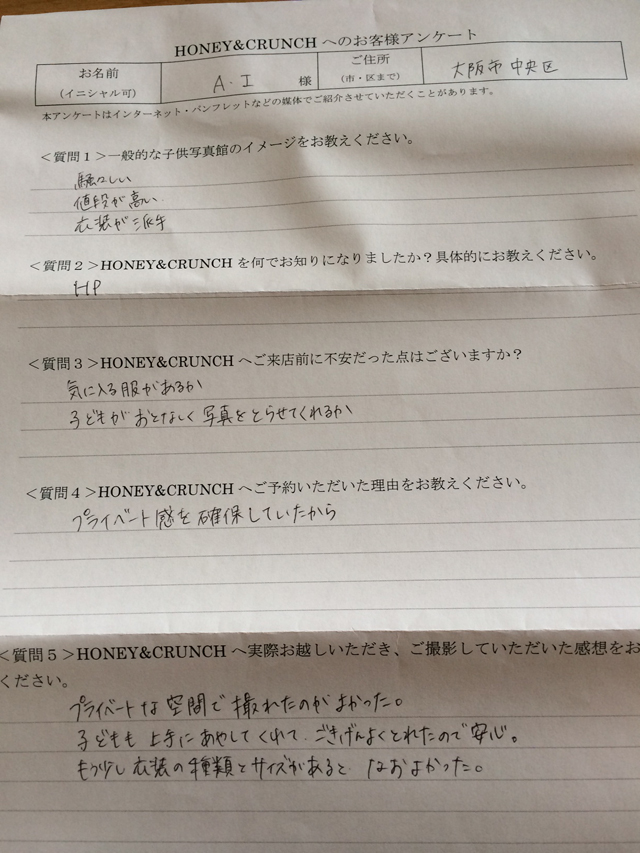 HONEY&CRUNCH へのお客様アンケート
お名前
(イニシャル可)
A・I 様
ご住所
(市・区まで)
大阪市中央区
本アンケートはインターネット・パンフレットなどの媒体でご紹介させていただくことがあります。
＜質問１＞一般的な子供写真館のイメージをお教えください。
騒々しい
値段が高い
衣装が派手
＜質問２＞HONEY&CRUNCH を何でお知りになりましたか？具体的にお教えください。
HP
＜質問３＞HONEY&CRUNCH へご来店前に不安だった点はございますか？
気に入る服があるか
子どもがおとなしく写真をとらせてくれるか
＜質問４＞HONEY&CRUNCH へご予約いただいた理由をお教えください。
プライベート感を確保していたから
＜質問５＞HONEY&CRUNCH へ実際お越しいただき、ご撮影していただいた感想をお
ください。
プライベートな空間で撮れたのがよかった。
子どもも上手にあやしてくれて、ごきげんよくとれたので安心。
もう少し衣装の種類とサイズがあると、なおよかった。